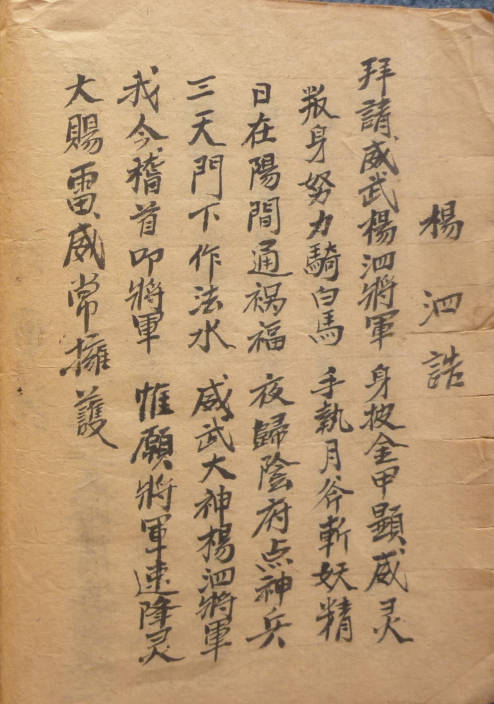 楊泗誥
拜請威武楊泗將軍 身披金甲顯威灵
叛身努力騎白馬 手執月斧斬妖精
日在陽間通祸福 夜歸陰府点神兵
三天門下作法水 威武大神楊泗將軍
我今稽首叩將軍 惟願將軍速降灵
大賜雷威常擁護